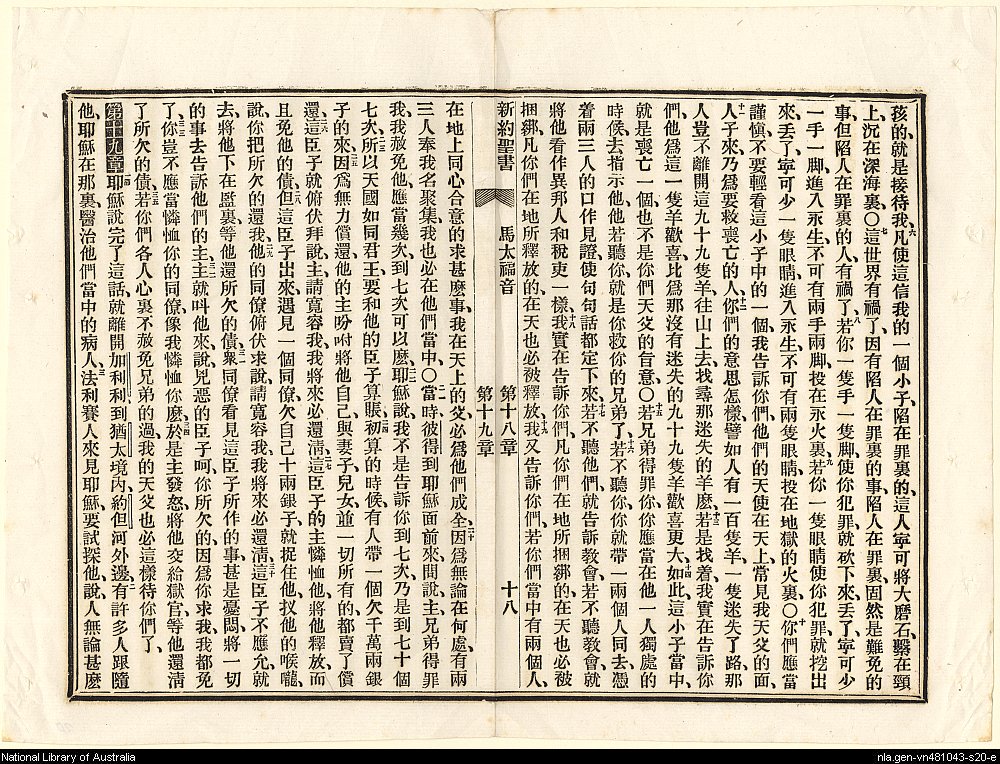 孩的、就是接待我、六凡使這信我的一個小子陷在罪裏的、這人寧可將大磨石、繫在頸
上、沉在深海裏、〇七這世界有禍了、因有陷人在罪裏的事、陷人在罪裏固然是難免的
事、但陷人在罪裏的人有禍了、八若你一隻手、一隻脚、使你犯罪、就砍下來丟了、寧可少
一手一脚、進入永生、不可有兩手兩脚、投在永火裏、九若你一隻眼睛使你犯罪、就挖出
來丟了、寧可少一隻眼睛進入永生、不可有兩隻眼睛投在地獄的火裏、〇十你們應當
謹愼、不要輕看這小子中的一個、我告訴你們、他們的天使在天上、常見我天父的面、
十一人子來、乃爲要救喪亡的人、十二你們的意思怎樣、譬如人有一百隻羊、一隻迷失了路、那
人豈不離開這九十九隻羊、往山上去、找尋那迷失的羊麽、十三若是找着、我實在告訴你
們、他爲這一隻羊歡喜、比爲那沒有迷失的九十九隻羊歡喜更大、十四如此、這小子當中、
就是喪亡一個、也不是你們天父的旨意、〇十五若兄弟得罪你、你應當在他一人獨處的
時候、去指示他、他若聽你、就是你救你的兄弟了、十六若不聽你、你就帶一兩個人同去、憑
着兩三人的口作見證、使句句話都定下來、十七若不聽他們、就告訴教會、若不聽教會、就
將他看作異邦人和稅吏一樣、十八我實在告訴你們、凡你們在地所捆綁的、在天也必被
捆綁、凡你們在地所釋放的、在天也必被釋放、十九我又告訴你們、若你們當中有兩個人、
新約聖書 馬太福音 第十八章 第十九章 十八
在地上同心合意的求甚麽事、我在天上的父、必爲他們成全、二十因爲無論在何處、有兩
三人奉我名聚集、我也必在他們當中、〇二一當時彼得到耶穌面前來、問說、主、兄弟得罪
我、我赦免他、應當幾次、到七次可以麽、二二耶穌說、我不是告訴你到七次、乃是到七十個
七次、二三所以天國如同君王、要和他的臣子算賬、二四初算的時候、有人帶一個欠千萬兩銀
子的來、二五因爲無力償還、他的主吩咐將他自己、與妻子兒女、並一切所有的都賣了償
還、二六這臣子就俯伏拜說、主、請寬容我、我將來必還淸、二七這臣子的主憐恤他、將他釋放、而
且免他的債、二八但這臣子出來、遇見一個同僚、欠自己十兩銀子、就捉住他、扠他的喉嚨、
說、你把所欠的還我、二九他的同僚俯伏求說、請寬容我、我將來必還淸、三十這臣子不應允、就
去將他下在監裏、等他還所欠的債、三一衆同僚看見這臣子所作的事、甚是憂悶、將一切
的事去告訴他們的主、三二主就叫他來、說、兇惡的臣子呵、你所欠的、因爲你求我、我都免
了你、三三豈不應當憐恤你的同僚、像我憐恤你麽、三四於是主發怒、將他交給獄官、等他還淸
了所欠的債、三五若你們各人心裏不赦免兄弟的過、我的天父也必這樣待你們了、
第十九章 一耶穌說完了這話、就離開加利利、到猶太境內、約但河外邊、二有許多人跟隨
他、耶穌在那裏醫治他們當中的病人、三法利賽人來見耶穌、要試探他、說、人無論甚麽
National Library of Australia
nla.gen-vn481043-s20-e